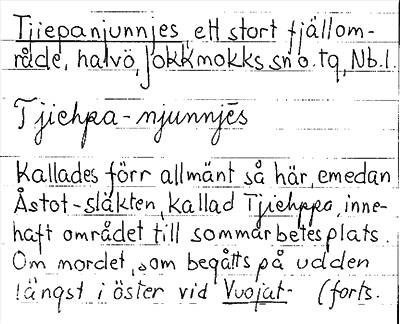 Tjiepanjunnjes, ett stort fjällom-
råde, halvö, Jokkmokks sn o. tg, Nb.l.
Tjiehpa-njunnjēs
Kallades förr allmänt så här, emedan
Åstot-släkten, kallad Tjiehppa, inne-
haft området till sommarbetesplats.
Om mordet, som begåtts på udden
längst i öster vid Vuojat- (forts.